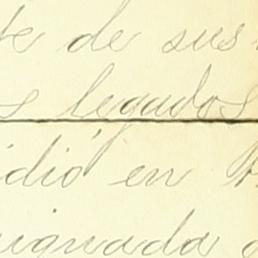 te de sus
s legados
idió en
ignada